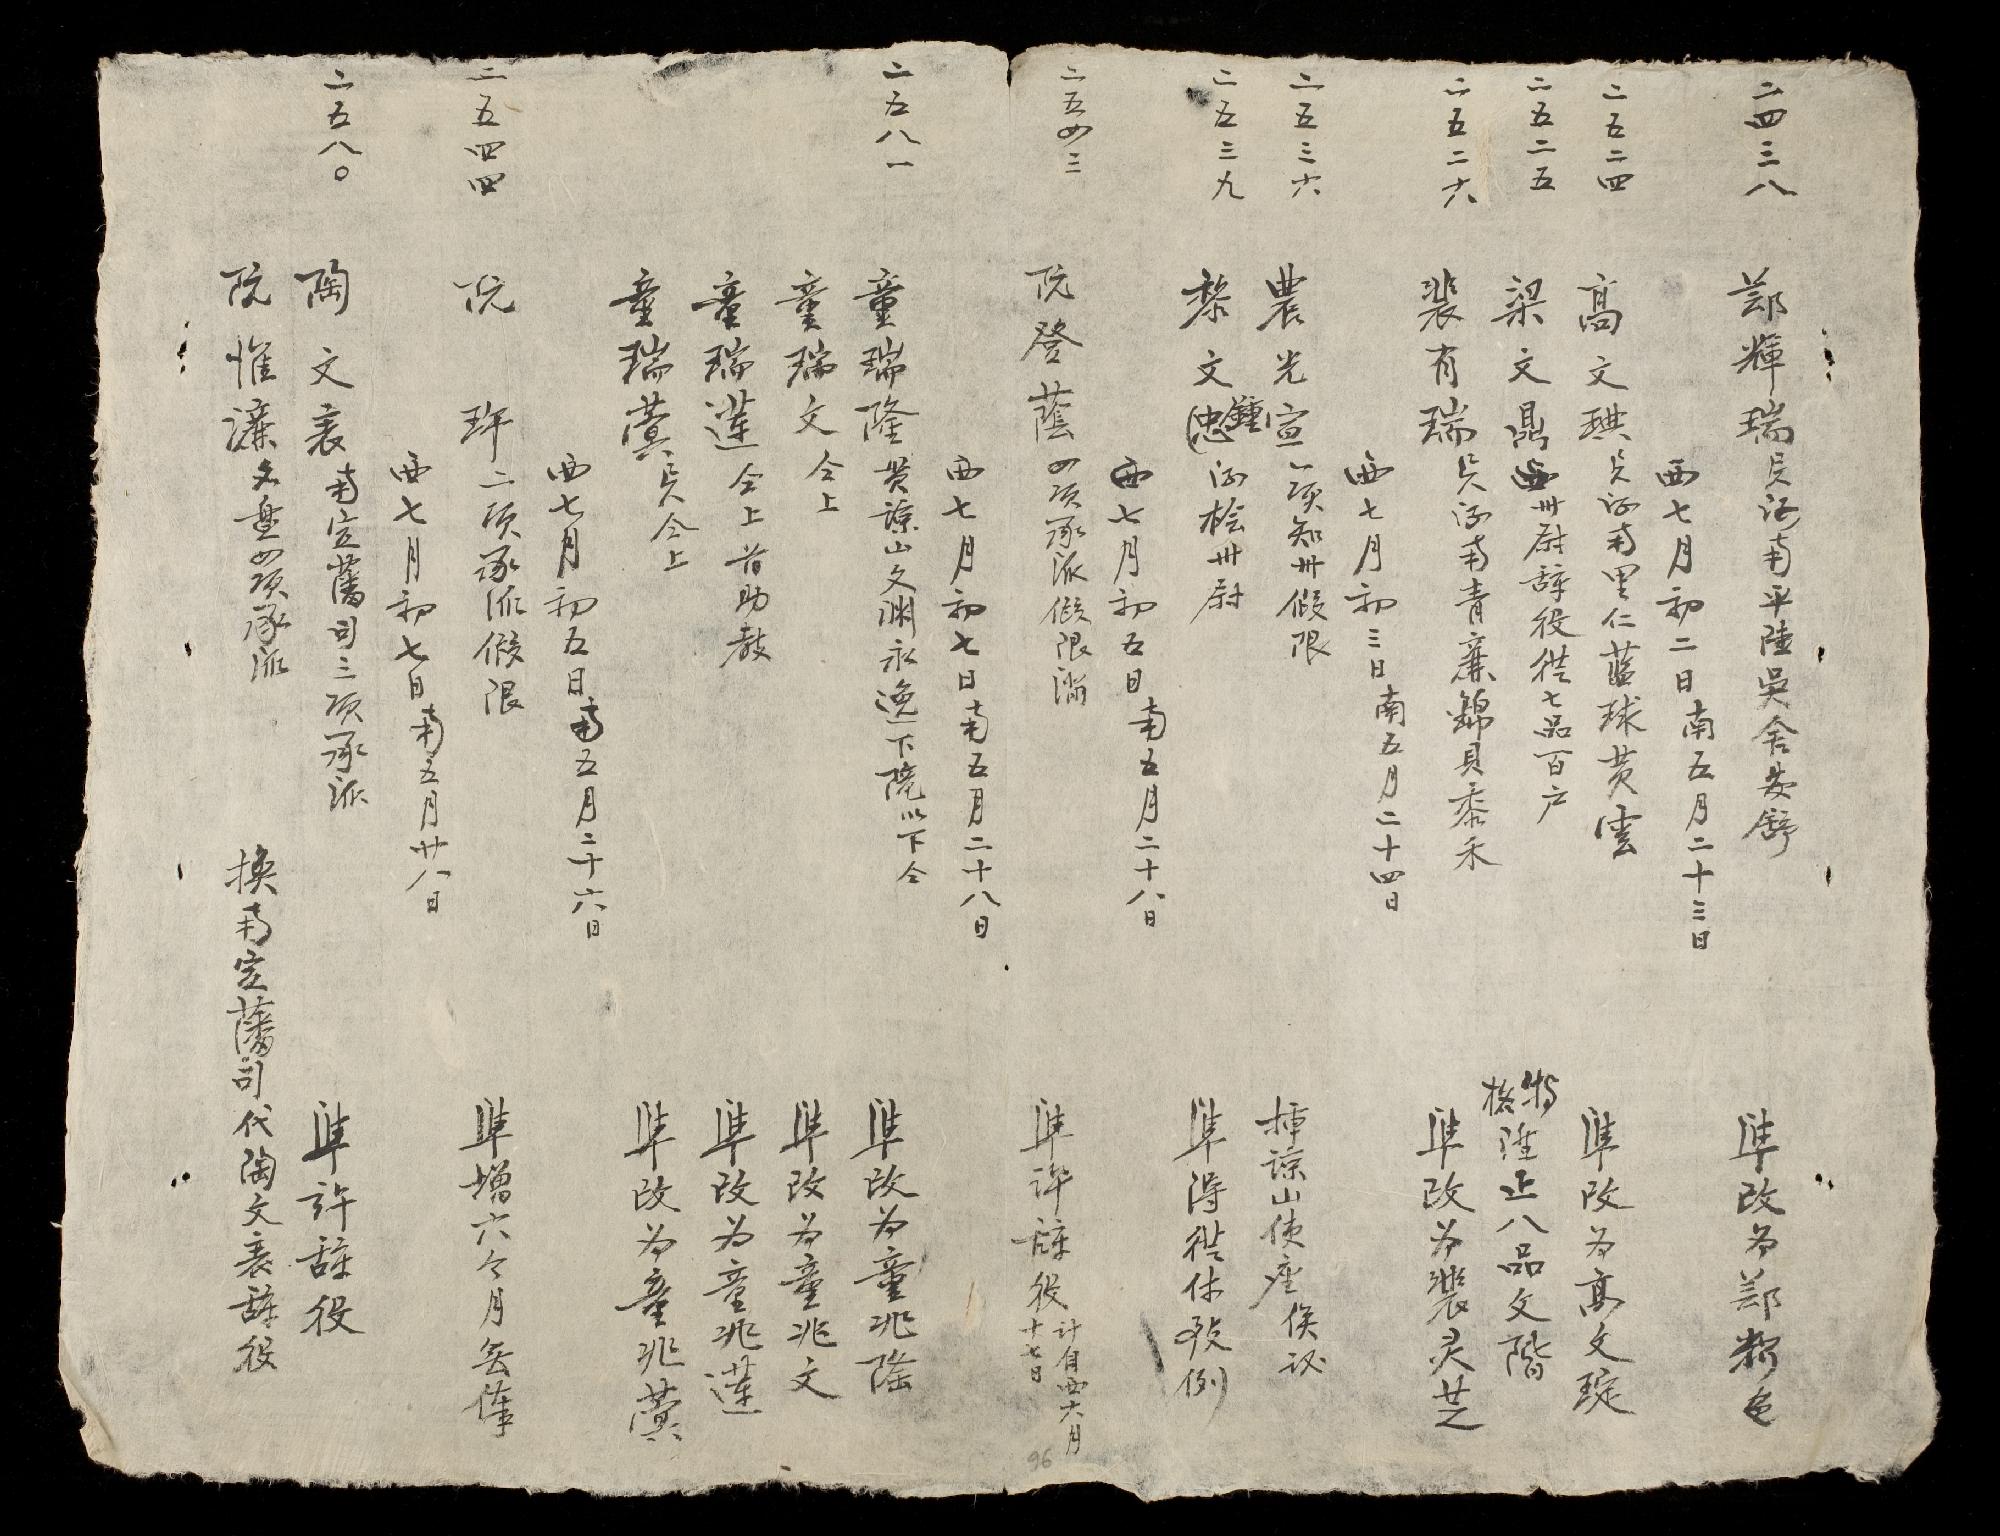 二四三八 鄚輝瑞 河南平陸吳舍 准改为鄚
西七月初二日南五月二十三日
二五二四 高文琪 河南里仁藍球黄雲 准改为高文琔
二五二五 梁文鼎 卅尉辞役從七品百户 特格陞正八品文階
二五二六 裴有瑞 河南青廉錦貝黍禾 准改为裴灵芝
西七月初三日南五月二十四日
二五三六 農光宣 一項知卅假限 諒山使座俟议
二五三九 黎文忠 鍾 河桧卅尉 准得從休致例
西七月初五日南五月二十八日
二五四三 阮登蔭 四項承派假限满 准许辞役 计自西六月十七日
西七月初七日南五月二十八日
二五八一 童瑞隆 貫諒山文渊永逸下 以下仝 准改为童兆隆
童瑞文 仝上 准改为童兆文
童瑞蓮 仝上 首助教 准改为童兆蓮
童瑞蓂 仝上 准改为童兆蓂
西七月初五日南五月二十六日
二五四四 阮玝 二項承派假限 准增六个月無俸
西七月初七日南五月廿八日
二五八〇 陶文衰 南定藩司三項承派 准許辞役
阮惟濂 文 四項承派 换南定藩司代陶文衰辞役
96